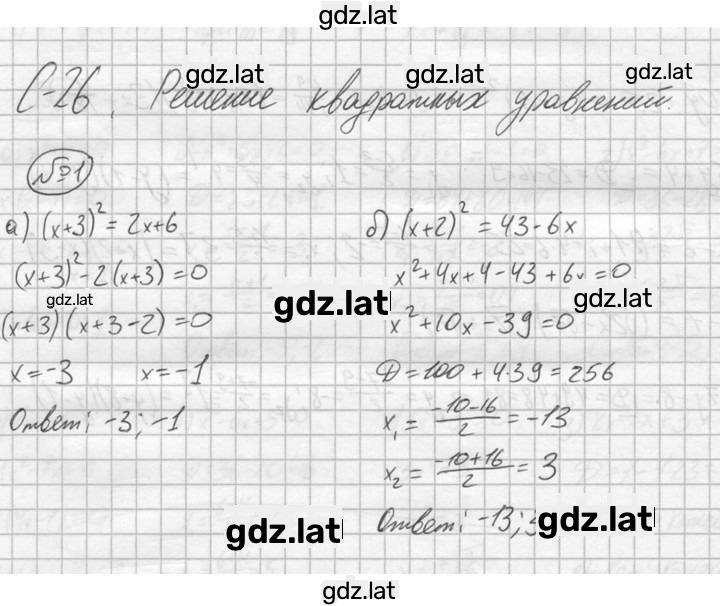 gdz.lat
gdz.lat gdz.lat gdz.lat
С-26. Решение квадратных уравнений.
№1
а) (x+3)² = 2x+6
(x+3)² - 2(x+3) = 0
gdz.lat
(x+3)(x+3-2) = 0
x = -3 x = -1
Ответ: -3; -1
б) (x+2)² = 43-6x
x² + 4x + 4 - 43 + 6x = 0
gdz.lat gdz.lat
x² + 10x - 39 = 0
D = 100 + 4·39 = 256
x₁ = (-10-16)/2 = -13
x₂ = (-10+16)/2 = 3
Ответ: -13; 3
gdz.lat gdz.lat
gdz.lat